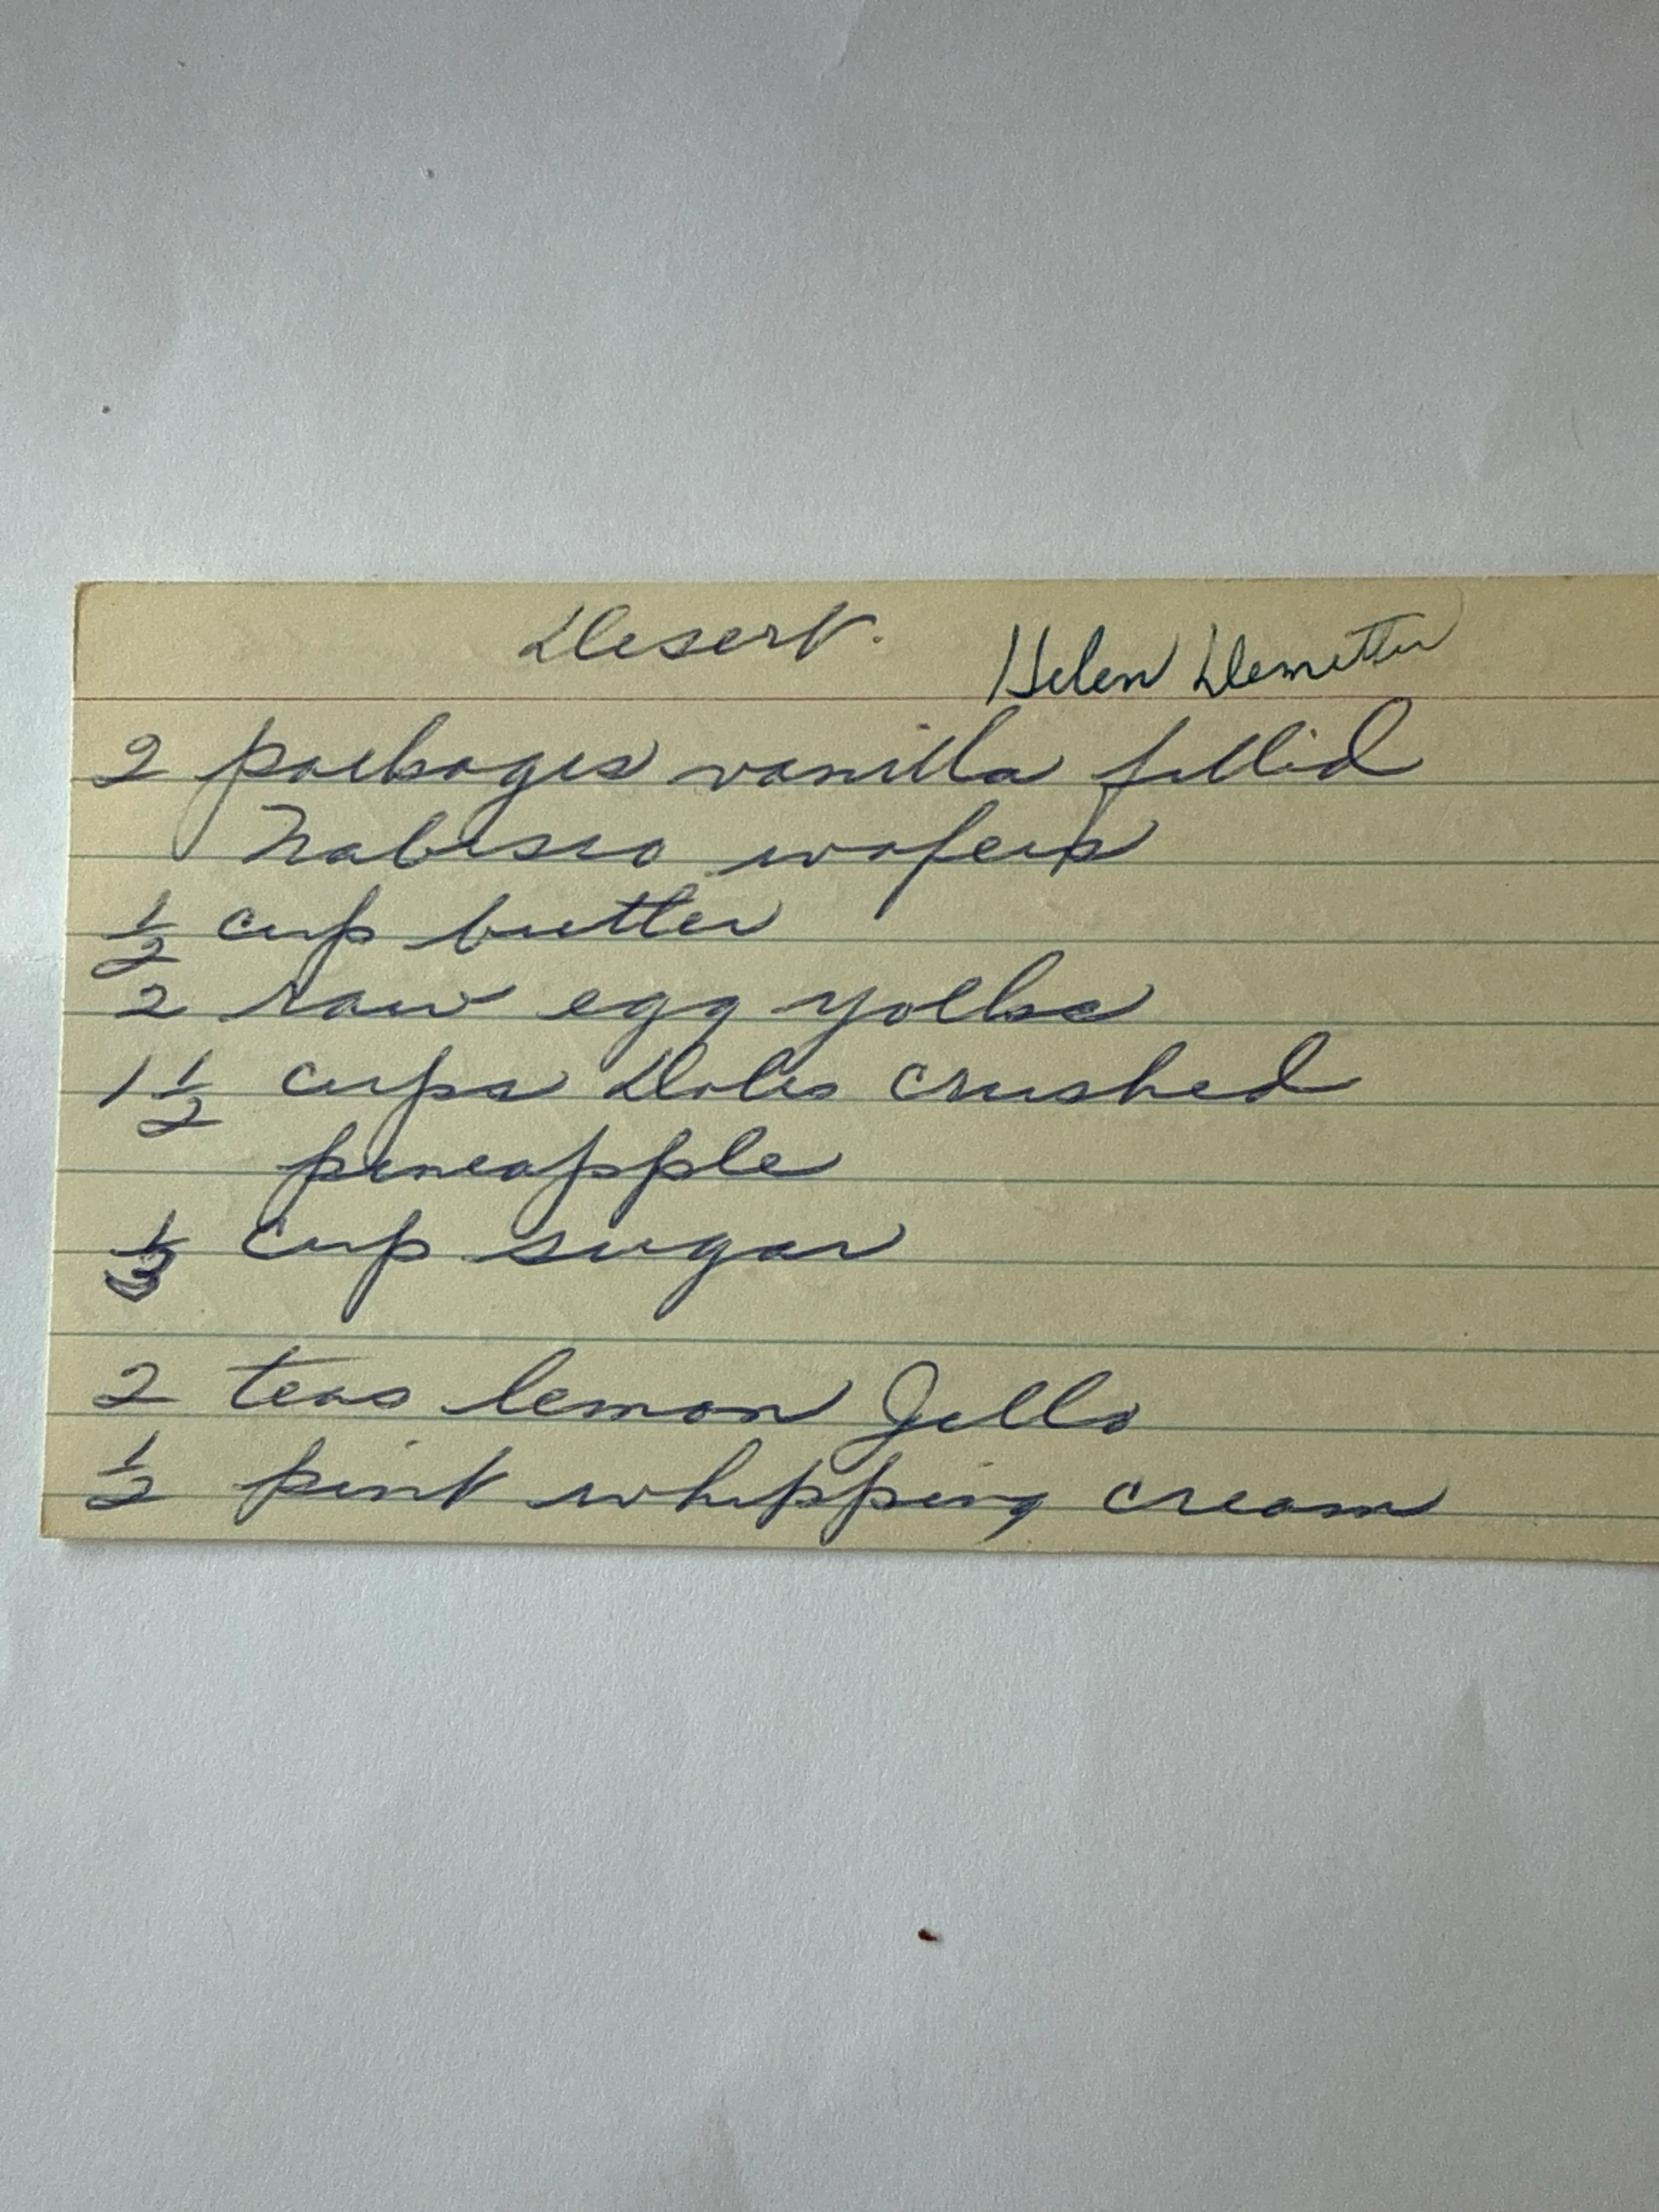 Desert.
Helen Demetter
2 packages vanilla filled
Nabisco wafers
1/2 cup butter
2 raw egg yolks
1 1/2 cups Doles crushed
pineapple
1/3 cup sugar
2 teas lemon Jello
1/2 pint whipping cream